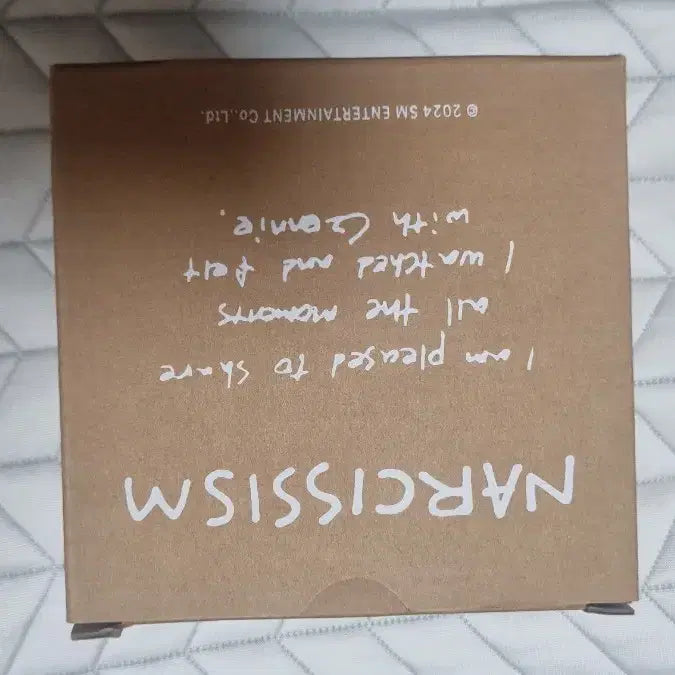 NARCISSISM
I am pleased to share
all the moments
I watched and felt
with Geonnie.
© 2024 SM ENTERTAINMENT Co.,Ltd.